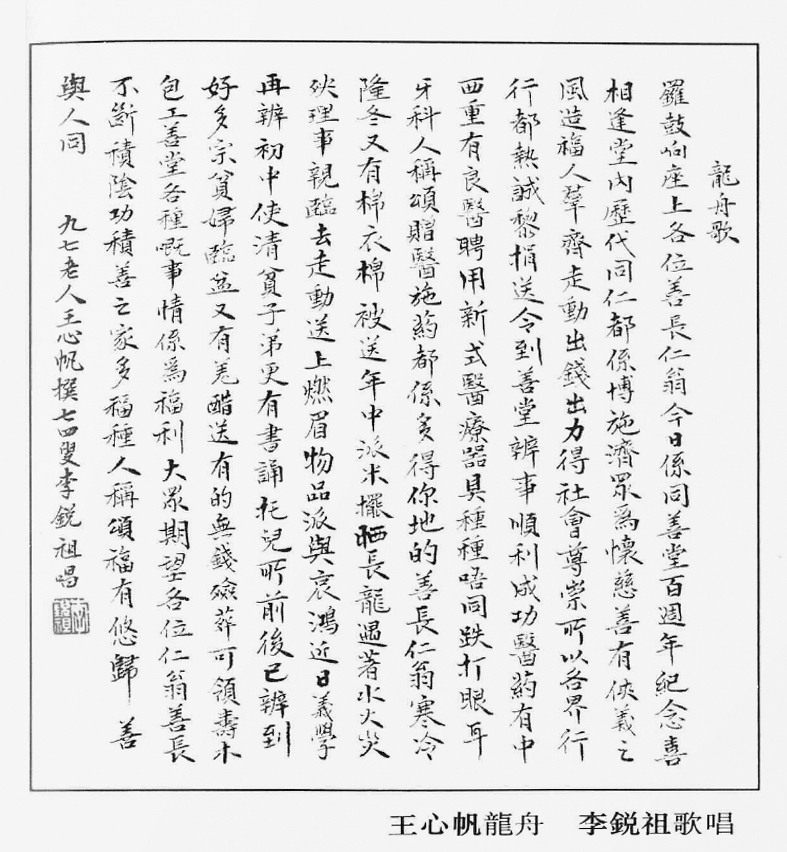 龍舟歌
羅鼓响座上各位善長仁翁今日係同善堂百週年紀念喜
相逢堂內歷代同仁都係博施濟眾為懷慈善有俠義之
風造福人羣齊走動出錢出力得社會尊崇所以各界行
行都熱誠黎捐送令到善堂辦事順利成功醫葯有中
西重有良醫聘用新式醫療器具種種唔同跌打眼耳
牙科人稱頌贈醫施葯都係多得你地的善長仁翁寒冷
隆冬又有棉衣棉被送年中派米擺晒長龍遇著水火災
殃理事親臨去走動送上燃眉物品派與哀鴻近日義學
再辦初中使清貧子弟更有書誦托兒所前後已辦到
好多宗貧婦臨盆又有羗醋送有的無錢殮葬可領壽木
包工善堂各種嘅事情係為福利大眾期望各位仁翁善長
不斷積陰功積善之家多福種人稱頌福有攸歸 善
與人同 九七老人王心帆撰七四叟李鋭祖唱
王心帆龍舟 李鋭祖歌唱